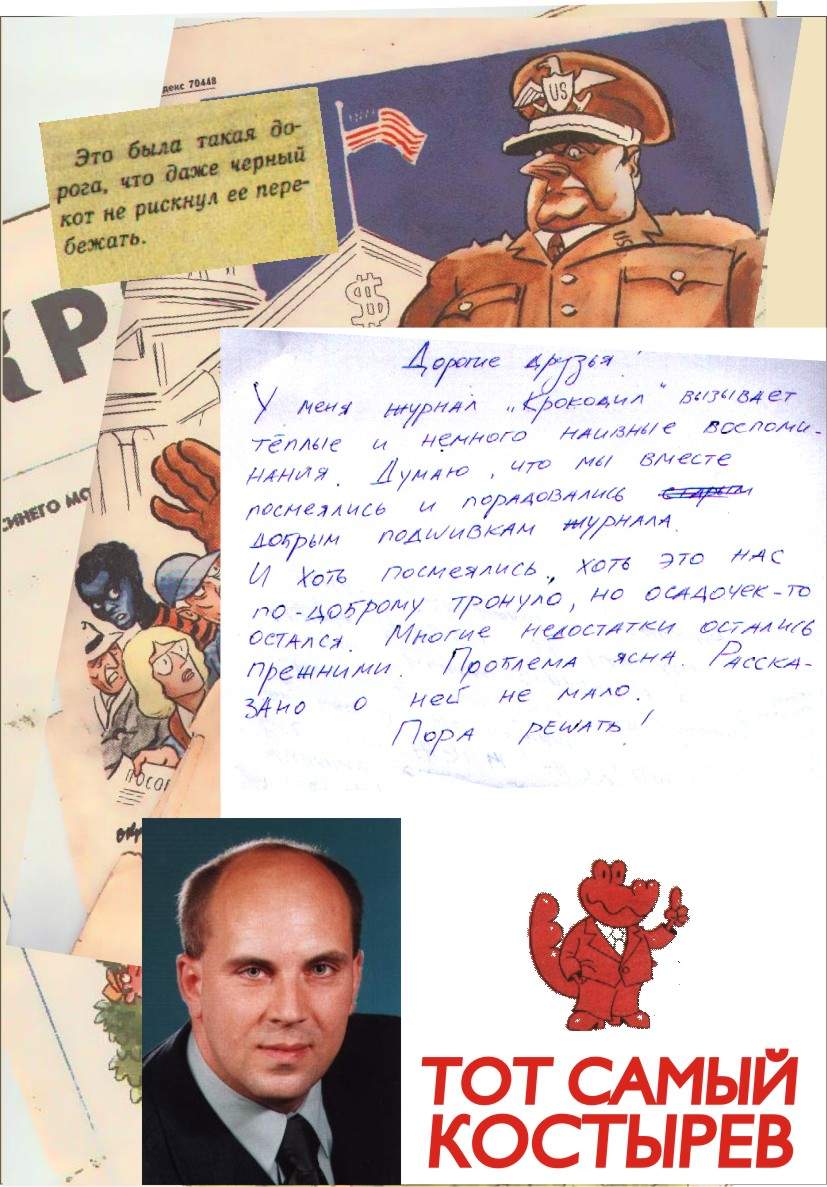 декс 70448
Это была такая до-
рога, что даже черный
кот не рискнул ее пере-
бежать.
US
US
$
КР
СИНЕГО МО
ПОСОБ
Дорогие друзья!
У меня журнал „Крокодил" вызывает
тёплые и немного наивные воспоми-
нания. Думаю, что мы вместе
посмеялись и порадовались старым
добрым подшивкам журнала.
И хоть посмеялись, хоть это нас
по-доброму тронуло, но осадочек-то
остался. Многие недостатки остались
прежними. Проблема ясна. Расска-
зано о ней не мало.
Пора решать!
ТОТ САМЫЙ
КОСТЫРЕВ